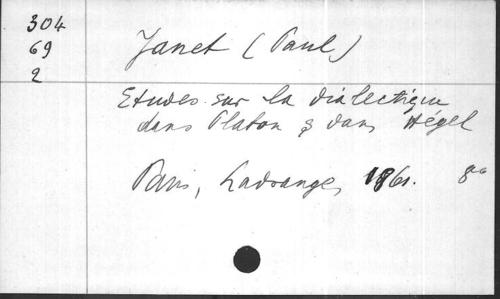 304
69
2
Janet (Paul)
Etudes sur la dialectique
dans Platon & dans Hégel
Paris, Ladrange, 1861. 8°